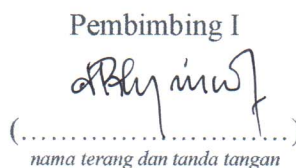 Pembimbing I
(..............................)
nama terang dan tanda tangan